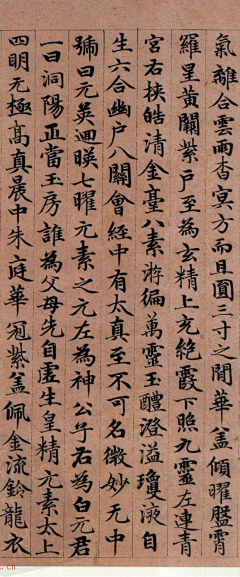 氣離合雲雨杳冥方而且圓三寸之間華盖傾曜鬱霄
羅星黄闕紫戶至為玄精上充絶霞下照九靈左連青
宮右挾皓清金臺八素遊徧萬靈玉醴澄溢瓊液自
生六合幽戶八關會經中有太真至不可名微妙无中
號曰元英迴暎七曜元素之元左為神公子右為白元君
一曰洞陽正當玉房誰為父母先自虛生皇精元素太上
四明元極高真晨中朱庭華冠紫盖佩金流鈴龍衣